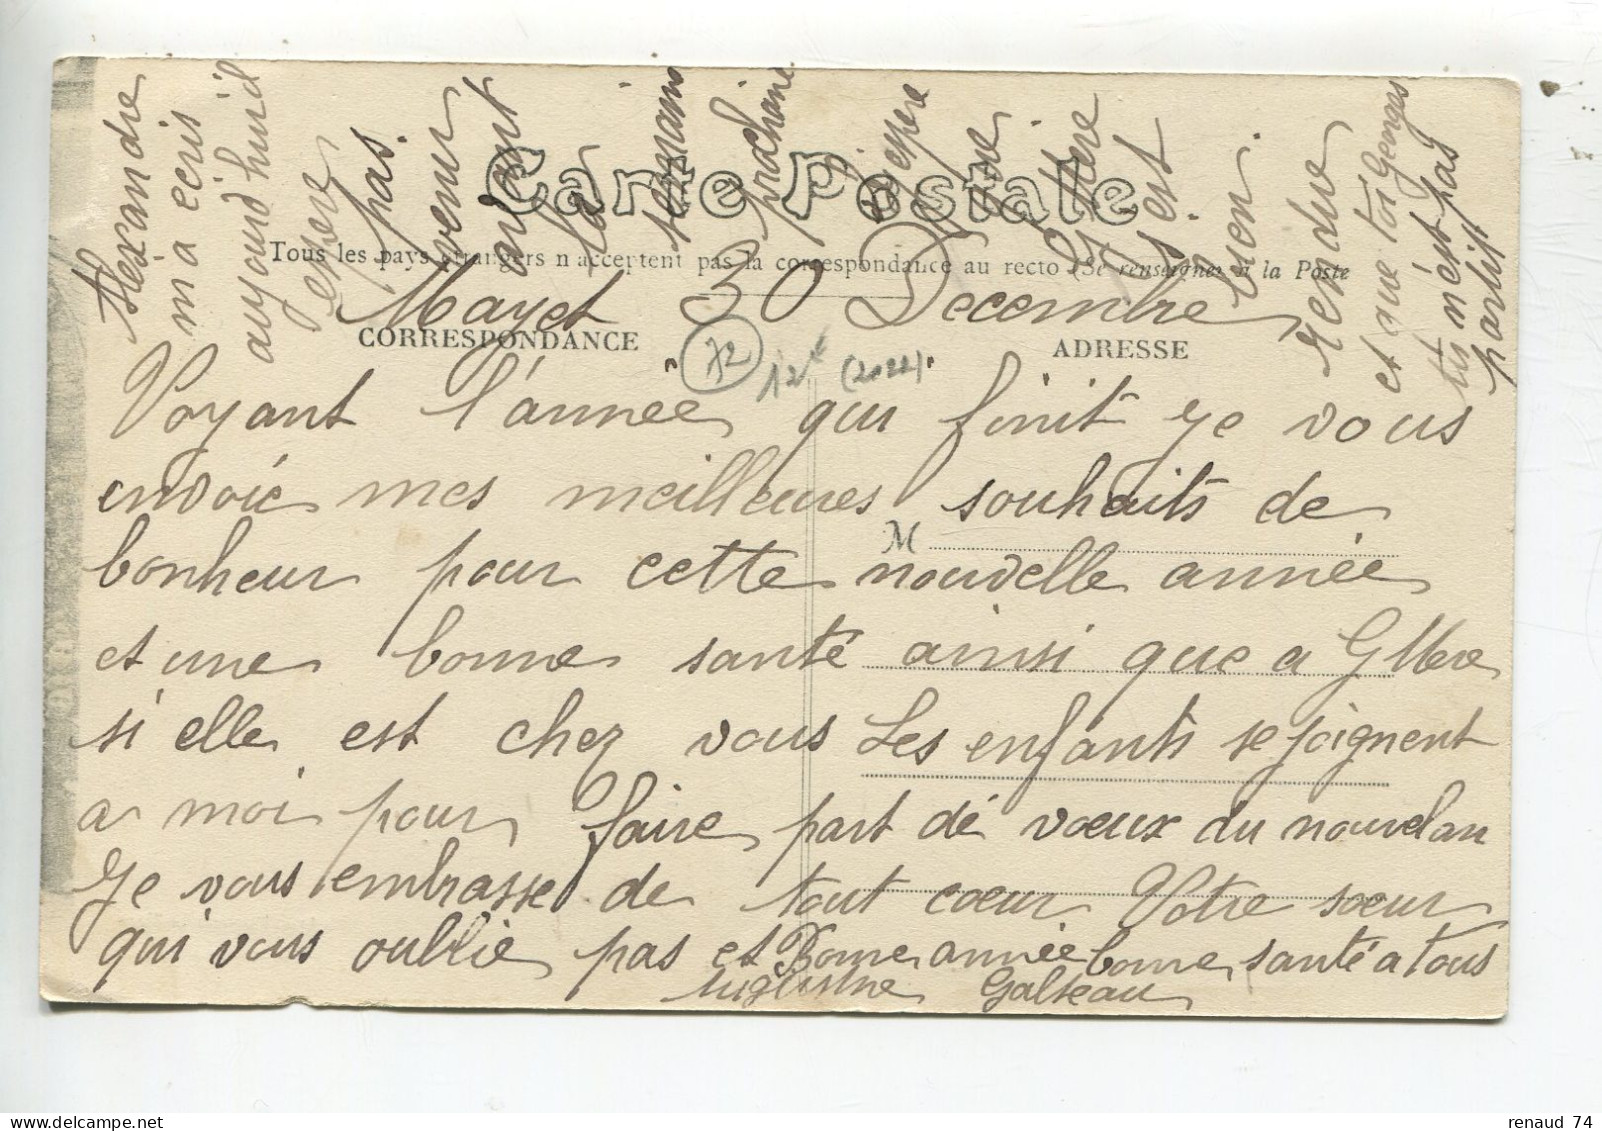 Carte Postale
Tous les pays étrangers n'acceptent pas la correspondance au recto (Se renseigner à la Poste
Mayet 30 Decembre
CORRESPONDANCE
ADRESSE
72
12€ (2022)
Voyant l'année qui finit je vous
envoie mes meilleures souhaits de
M
bonheur pour cette nouvelle année
et une bonne santé ainsi que a
si elle est chez vous Les enfants se joignent
a moi pour faire part de voeux du nouvel an
Je vous embrasse de tout coeur Votre soeur
qui vous oublie pas et Bonne année bonne santé a tous
Augustine Galteau
Alexandre
m a ecris
aujourd huid
espere
pas.
venir
avant
la
semaine
prochaine
J espere
s est
bien
rendue
et que toi Georges
tu n'est pas
partit
renaud 74